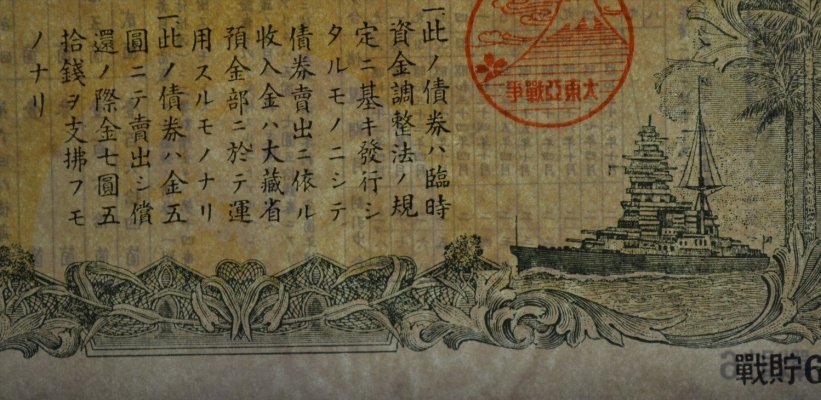 一此ノ債券ハ臨時
資金調整法ノ規
定ニ基キ發行シ
タルモノニシテ
債券賣出ニ依ル
收入金ハ大藏省
預金部ニ於テ運
用スルモノナリ
一此ノ債券ハ金五
圓ニテ賣出シ償
還ノ際金七圓五
拾錢ヲ支拂フモ
ノナリ
大東亞戰爭
戰貯6